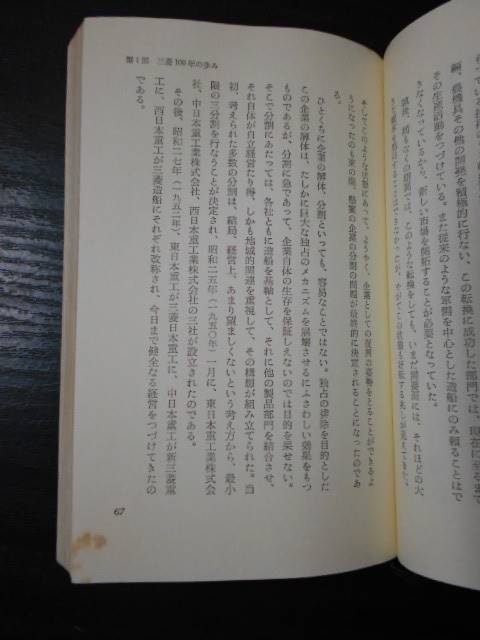 輌、農機具その他の開発を積極的に行ない、この転換に成功した部門では、現在に至るまで
その生産活動をつづけている。また従来のような軍需を中心とした造船にのみ頼ることはで
きなくなっているから、新しい市場を開拓することが必要となっていた。
そしてこのような状態にあって、ようやく、企業としての復興の姿勢をとることができるよ
うになったのもこの頃、懸案の企業の分割の問題が最終的に決定されることになったのであ
る。
ひとくちに企業の解体、分割といっても、容易なことではない。独占の排除を目的とした
この企業の解体は、たしかに巨大な独占のメカニズムを崩壊させるにふさわしい効果をもつ
ものであるが、分割に急であって、企業自体の生存を保証しえないのでは目的を果せない。
そこで分割にあたっては、各社ともに造船を基軸として、それに他の製品部門を結合させ、
それ自体が自立経営たり得、しかも地域的関連を重視して、その構想が組み立てられた。当
初、考えられた多数の分割は、結局、経営上、あまり望ましくないという考え方から、最小
限の三分割を行なうことが決定され、昭和二五年(一九五〇)一月に、東日本重工業株式会
社、中日本重工業株式会社、西日本重工業株式会社の三社が設立されたのである。
その後、昭和二七年(一九五二年)、東日本重工が三菱日本重工に、中日本重工が新三菱重
工に、西日本重工が三菱造船にそれぞれ改称され、今日まで健全なる経営をつづけてきたの
である。
第1部 三菱100年の歩み
67